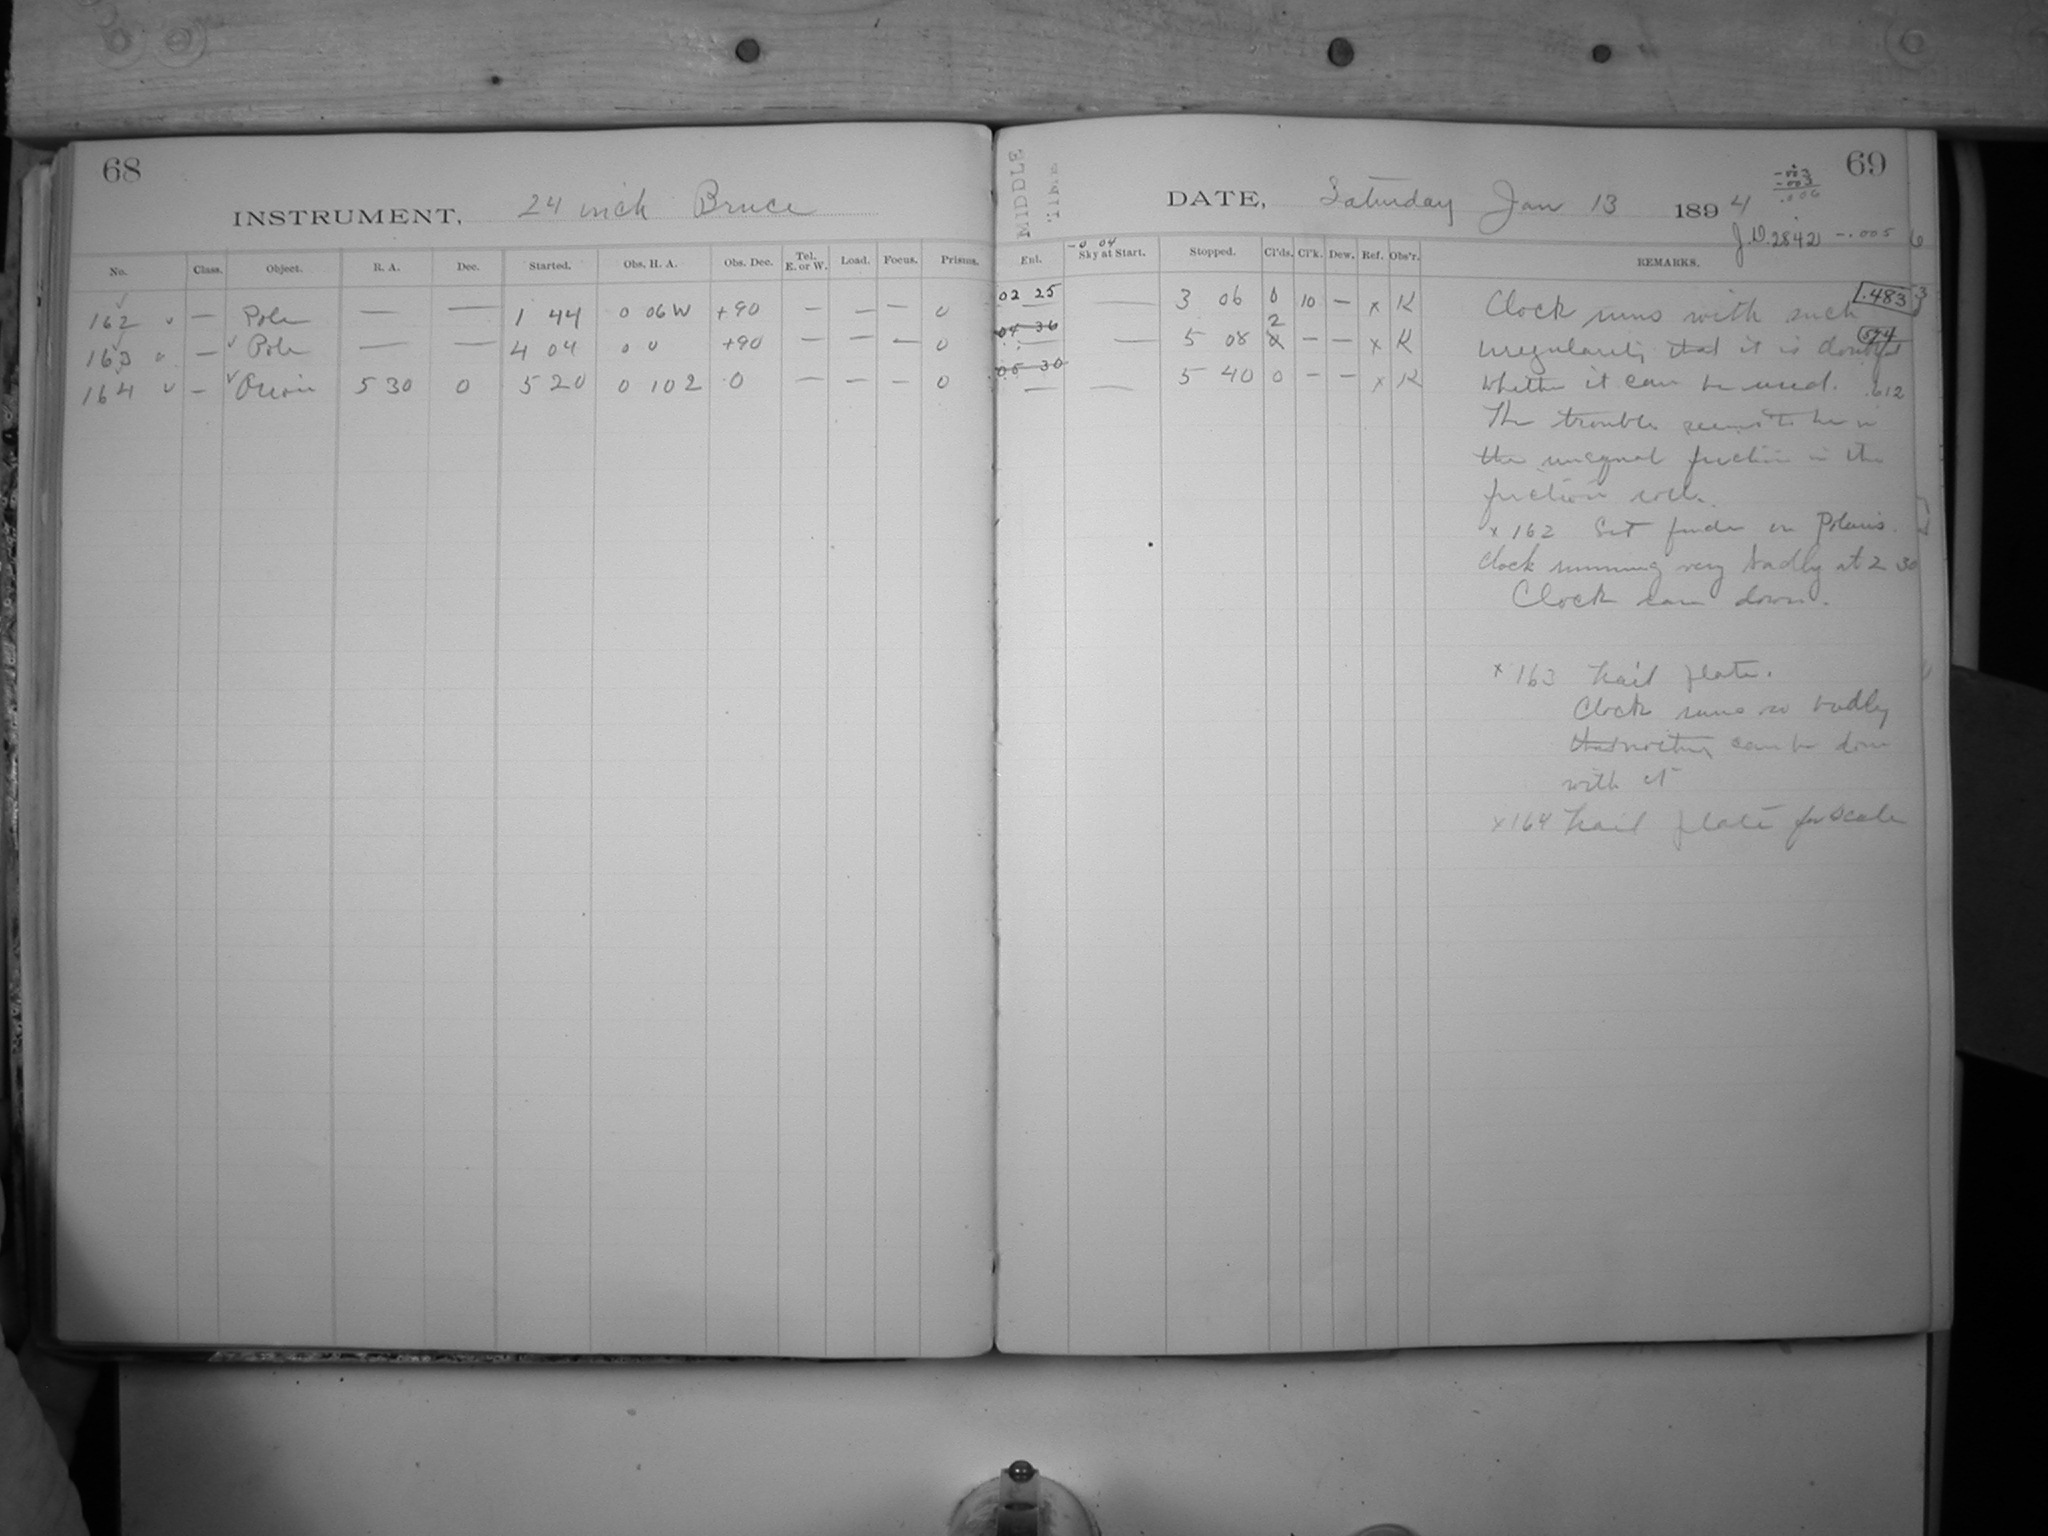 68
INSTRUMENT, 24 inch Bruce
No. Class. Object. R. A. Dec. Started. Obs. H. A. Obs. Dec. Tel. E. or W. Load. Focus. Prisms.
162 — Pole — — 1 44 0 06W +90 — — — 0
163 — Pole — — 4 04 0 0 +90 — — — 0
164 — Orion 5 30 0 5 20 0 10 2 0 — — — 0
MIDDLE
Time
69
DATE, Saturday Jan 13 1894
-.003
-.003
.006
J.D. 2842 -.005
-0 04
Enl. Sky at Start. Stopped. Cl'ds. Cl'k. Dew. Ref. Obs'r. REMARKS.
02 25 — 3 06 0 10 — x K
04 36 — 5 08 2 — — x K
05 30 — 5 40 0 — — x K
Clock runs with such .483
irregularity that it is doubtful .574
whether it can be used. .612
The trouble seems to be in
the unequal friction in the
friction
x 162 Set finder on Polaris.
Clock running very badly at 2 30
Clock ran down.
x 163 Trail plate.
Clock runs so badly
that nothing can be done
with it
x 164 Trail plate for scale